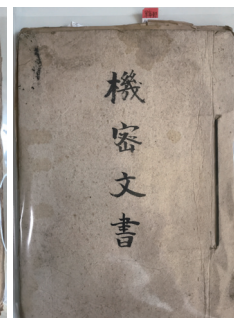 機密文書